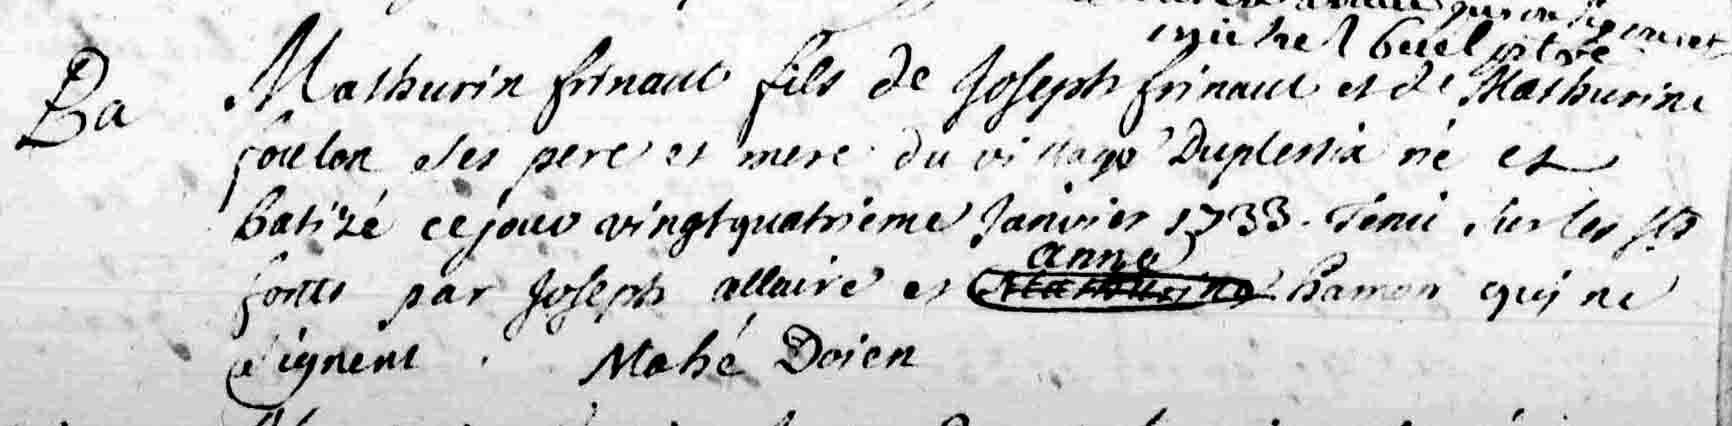 michel
Ba Mathurin frinaut fils de Joseph frinaut et de Mathurine
foulon ses pere et mere du village Duplessix né et
batizé ce jour vingtquatrieme Janvier 1733. Tenu sur les sts
fonts par Joseph allaire et anne hamon qui ne
signent. Mahé Doien